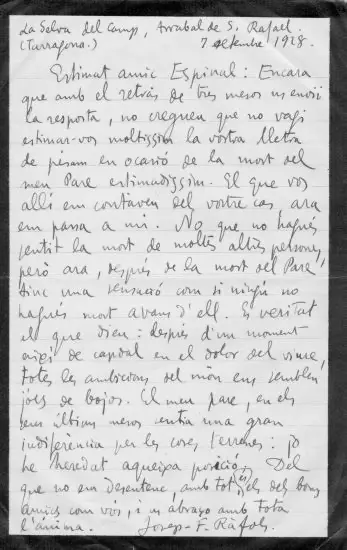 La Selva del Camp, Arrabal de S. Rafael.
(Tarragona.) 7 setembre 1928.
Estimat amic Espinal: Encara
que amb el retràs de tres mesos us enviï
la resposta, no cregueu que no vagi
estimar-vos moltíssim la vostra lletra
de pèsam en ocasió de la mort del
meu Pare estimadíssim. El que vos
allí em contàveu del vostre cas, ara
em passa a mi. No que no hagués
sentit la mort de moltes altres persones,
però ara, després de la mort del Pare,
tinc una sensació com si ningú no
hagués mort avans d'ell. És veritat
el que dieu: després d'un moment
de capdal en el dolor del viure,
totes les ambicions del món ens semblen
jocs de bojos. El meu pare, en els
seus últims mesos sentia una gran
indiferència per les coses terrenes: jo
he heredat aqueixa posició. Del
que no em desentenc, amb tot, és dels bons
amics com vos, i us abraço amb tota
l'ànima. Josep-F. Ràfols.